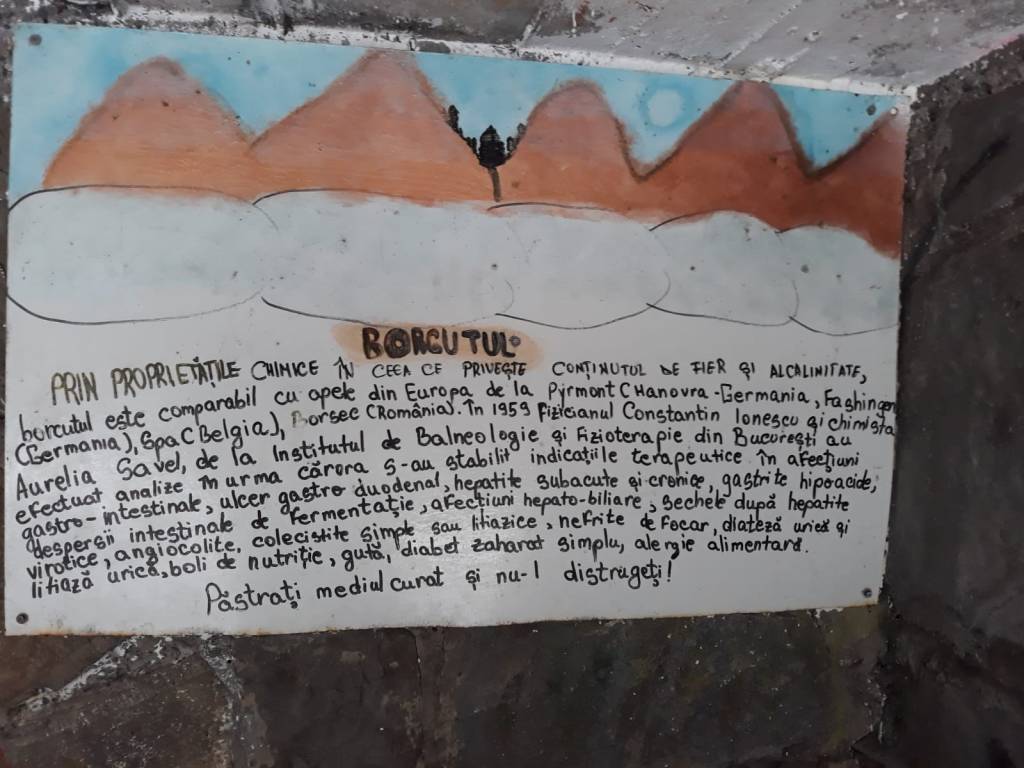 BORCUTUL
PRIN PROPRIETĂȚILE CHIMICE ÎN CEEA CE PRIVEȘTE CONȚINUTUL DE FIER ȘI ALCALINITATE,
borcutul este comparabil cu apele din Europa de la Pyrmont (Hanovra-Germania, Fashingen
(Germania), Spa (Belgia), Borsec (România). În 1959 Fizicianul Constantin Ionescu și chimista
Aurelia Savel, de la Institutul de Balneologie și Fizioterapie din București au
efectuat analize în urma cărora s-au stabilit indicațiile terapeutice în afecțiuni
gastro-intestinale, ulcer gastro duodenal, hepatite subacute și cronice, gastrite hipoacide,
despersii intestinale de fermentație, afecțiuni hepato-biliare, sechele după hepatite
virotice, angiocolite, colecistite simple sau litiazice, nefrite de focar, diateză urică și
litiază urică, boli de nutriție, gută, diabet zaharat simplu, alergie alimentară.
Păstrați mediul curat și nu-l distrugeți!